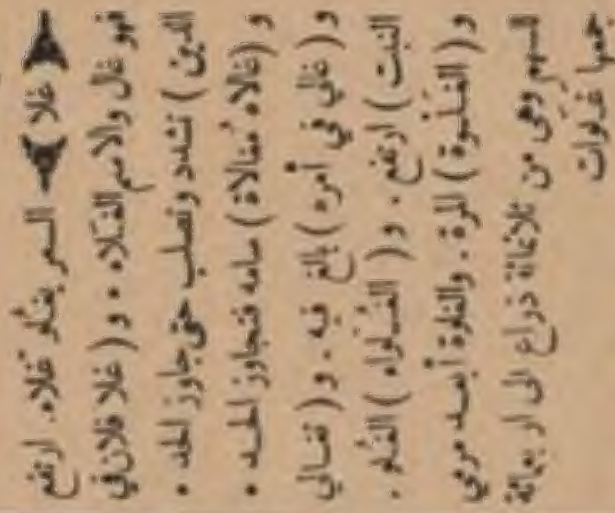 ﴿ غلا ﴾ السعر يغلُو غَلاء. ارتفع
فهو غال والاسم الغَلاء • و ( غلا فلان في
الدين ) تشدد وتصلب حتى جاوز الحد •
و (غالاه مُغالاة ) سامه فتجاوز الحد •
و ( غالي في أمره ) بالغ فيه . و ( تغالي
النبت ) ارتفع . و ( الغُلَواء ) الغُلُو .
و ( الغَلْوة ) المرة . والغلوة أبعد مرمي
السهم وهى من ثلاثمائة ذراع الى اربعمائة
جمعها غَلَوات